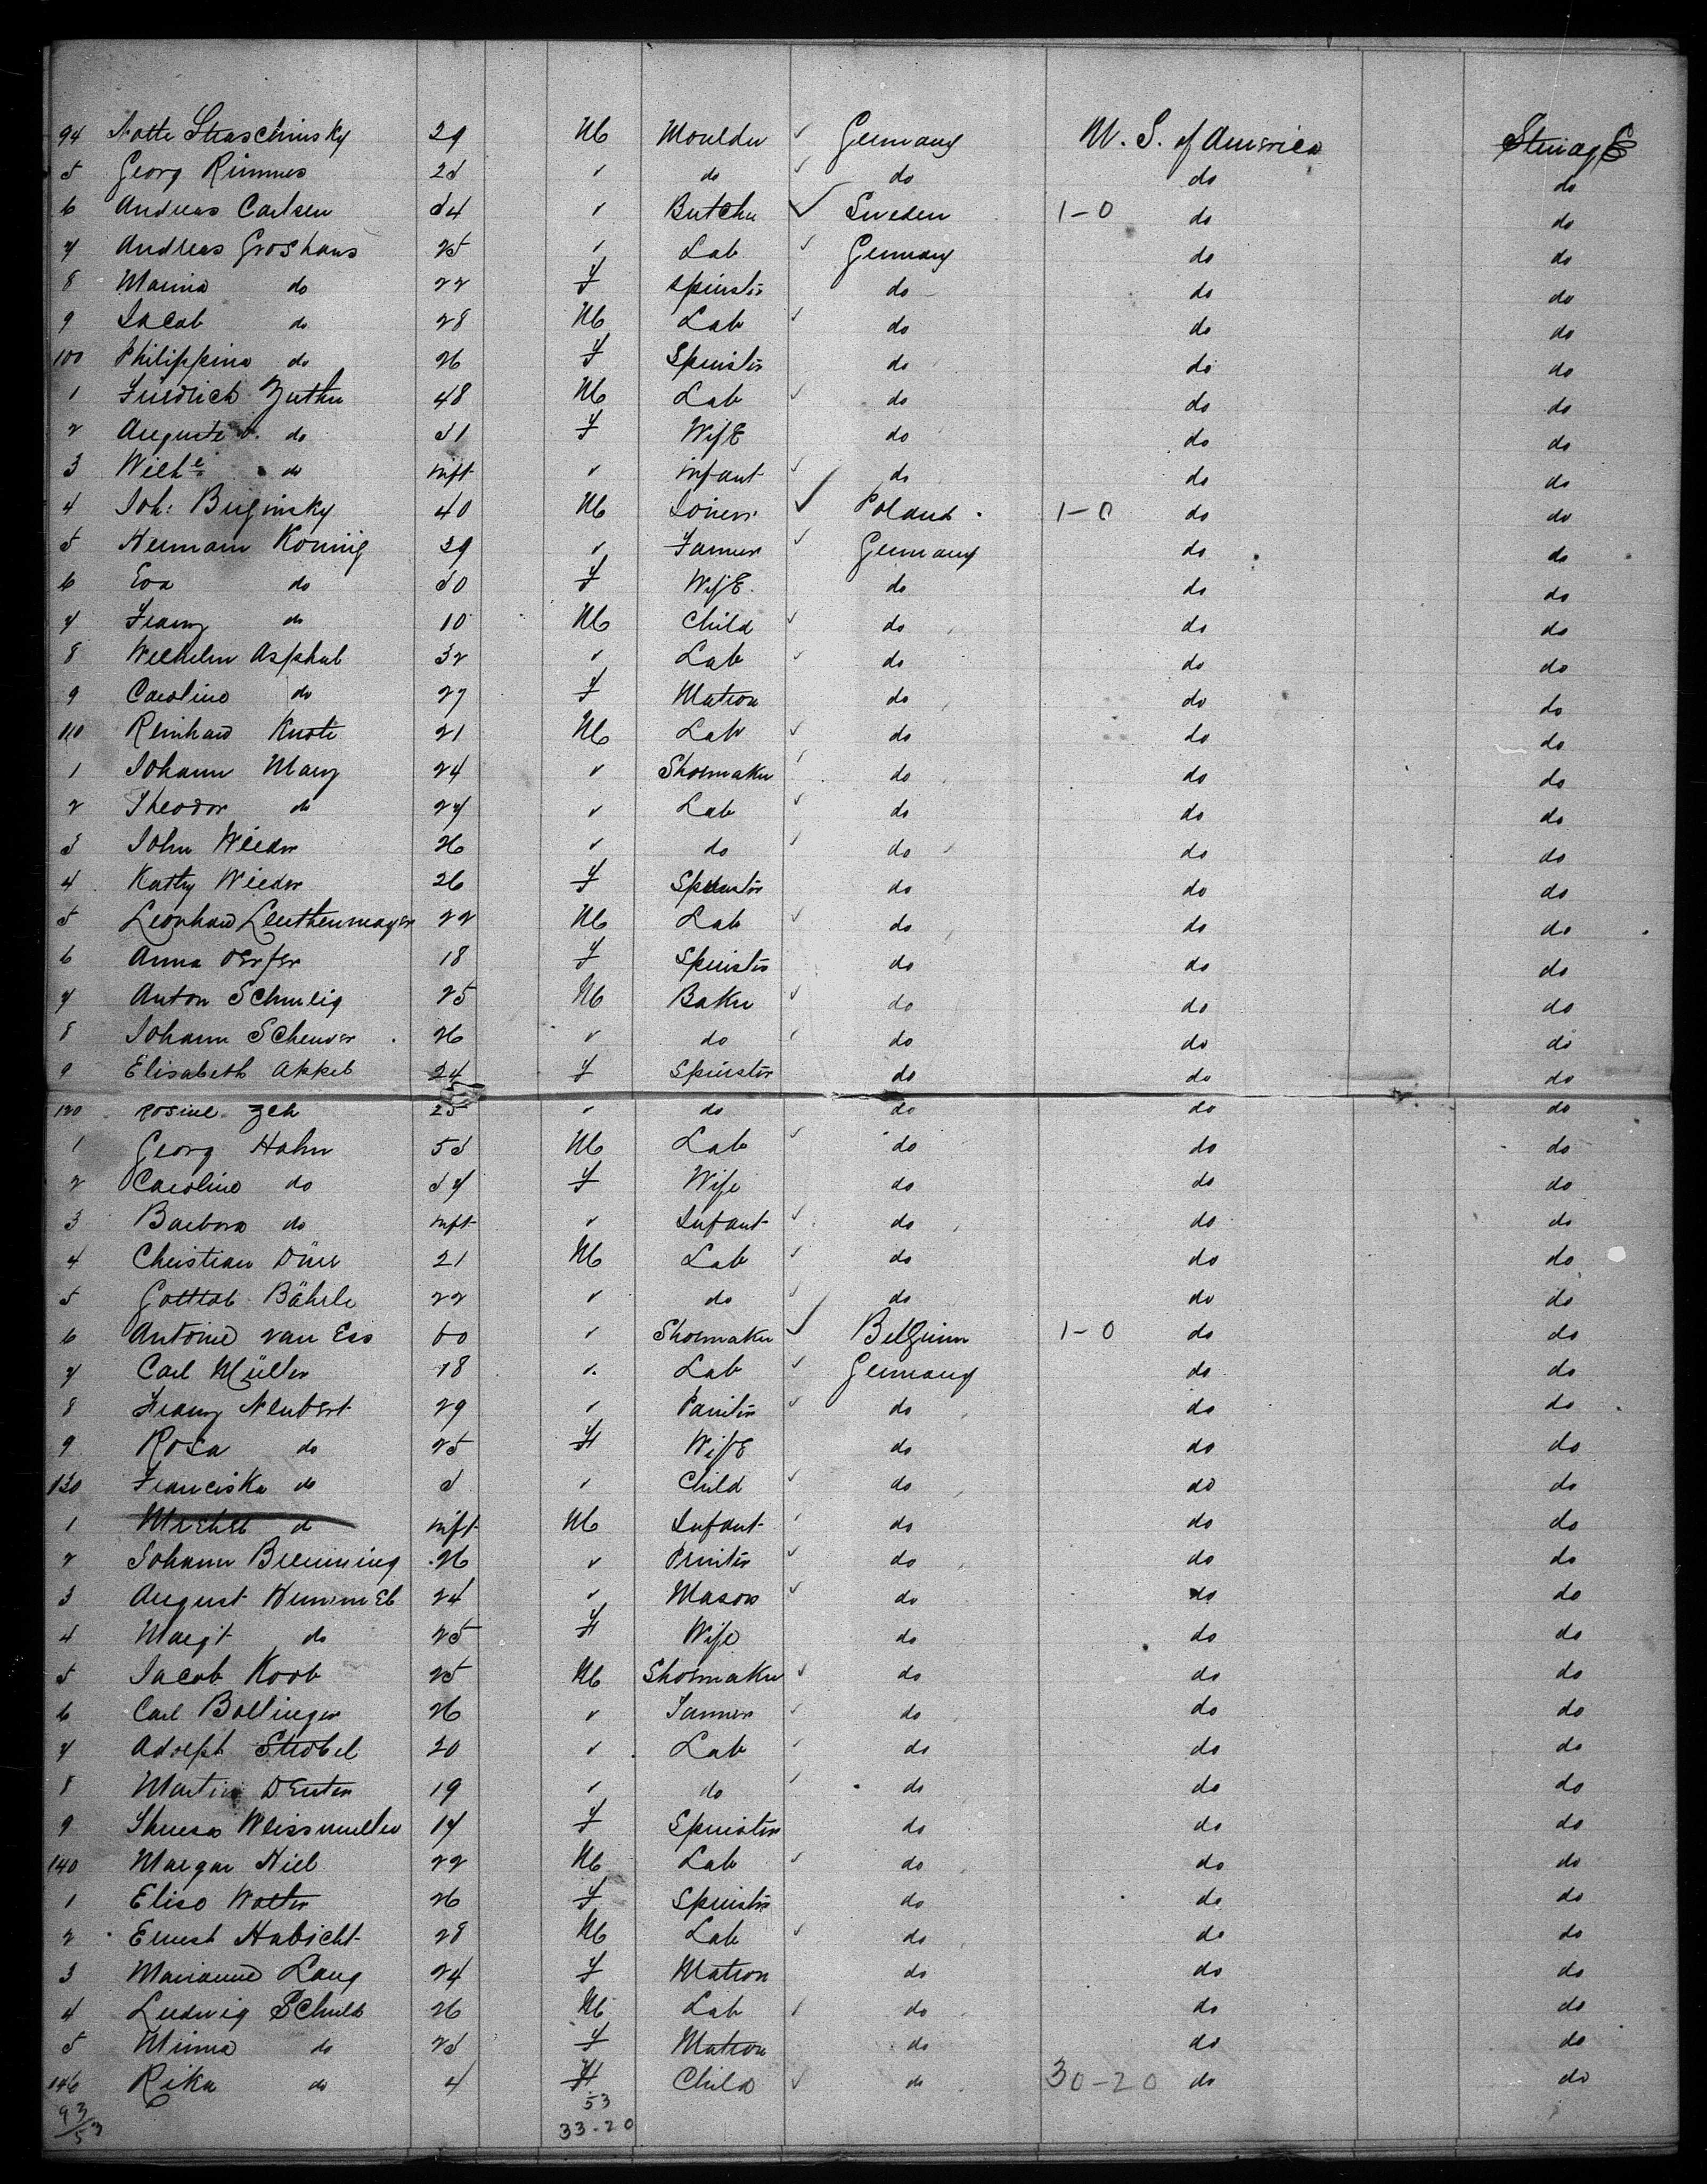 94 Notte Straschinsky 29 M Moulder ✓ Germany U. S. of America Steerage
5 Georg Rimmes 23 " do ✓ do do do
6 Andreas Carlsen 34 " Butcher ✓ Sweden 1-0 do do
7 Andreas Groshans 25 " Lab ✓ Germany do do
8 Marina do 22 F Spinster do do do
9 Jacob do 28 M Lab ✓ do do do
100 Philippina do 26 F Spinster do do do
1 Friedrich 48 M Lab ✓ do do do
2 Auguste do 31 F Wife do do do
3 Wilhe do inft " infant ✓ do do do
4 Joh: Buginsky 40 M Joiner ✓ Poland 1-0 do do
5 Hermann Konnig 39 " Farmer ✓ Germany do do
6 Eva do 30 F Wife do do do
7 Franz do 10 M Child ✓ do do do
8 Wilhelm Asphal 32 " Lab ✓ do do do
9 Caroline do 27 F Matron do do do
110 Reinhard Knote 21 M Lab ✓ do do do
1 Johann Marz 24 " Shoemaker ✓ do do do
2 Theodor do 27 " Lab ✓ do do do
3 John Wieder 26 " do ✓ do do do
4 Kathy Wieder 26 F Spinster do do do
5 Leonhard Leuthenmayer 22 M Lab ✓ do do do
6 Anna Derfer 18 F Spinster do do do
7 Anton Schmelig 25 M Baker ✓ do do do
8 Johann Scheurer 26 " do ✓ do do do
9 Elisabeth Appel 24 F Spinster do do do
120 Rosine Zeh 25 " do do do do
1 Georg Hahn 53 M Lab ✓ do do do
2 Caroline do 37 F Wife do do do
3 Barbara do inft " Infant ✓ do do do
4 Christian Dürr 21 M Lab ✓ do do do
5 Gottlob Bährle 22 " do ✓ do do do
6 Antoine van Ess 60 " Shoemaker ✓ Belgium 1-0 do do
7 Carl Müller 18 " Lab ✓ Germany do do
8 Franz Neubert 29 " Painter ✓ do do do
9 Rosa do 25 F Wife do do do
130 Franciska do 3 " Child ✓ do do do
1 do inft M Infant ✓ do do do
2 Johann Brenning 26 " Printer ✓ do do do
3 August Hummel 24 " Mason ✓ do do do
4 Margt do 25 F Wife do do do
5 Jacob Koob 25 M Shoemaker ✓ do do do
6 Carl Bollinger 26 " Tanner ✓ do do do
7 Adolph Strobel 20 " Lab ✓ do do do
8 Martin Denter 19 " do ✓ do do do
9 Theresa Weissmuller 17 F Spinster do do do
140 Margar Hiel 22 M Lab ✓ do do do
1 Elise Walter 26 F Spinster do do do
2 Ernest Habicht 28 M Lab ✓ do do do
3 Marianne Lang 24 F Matron do do do
4 Ludwig Schuld 26 M Lab ✓ do do do
5 Minna do 23 F Matron do do do
146 Rika do 4 F Child ✓ do 30-20 do do
93 53
53 33-20